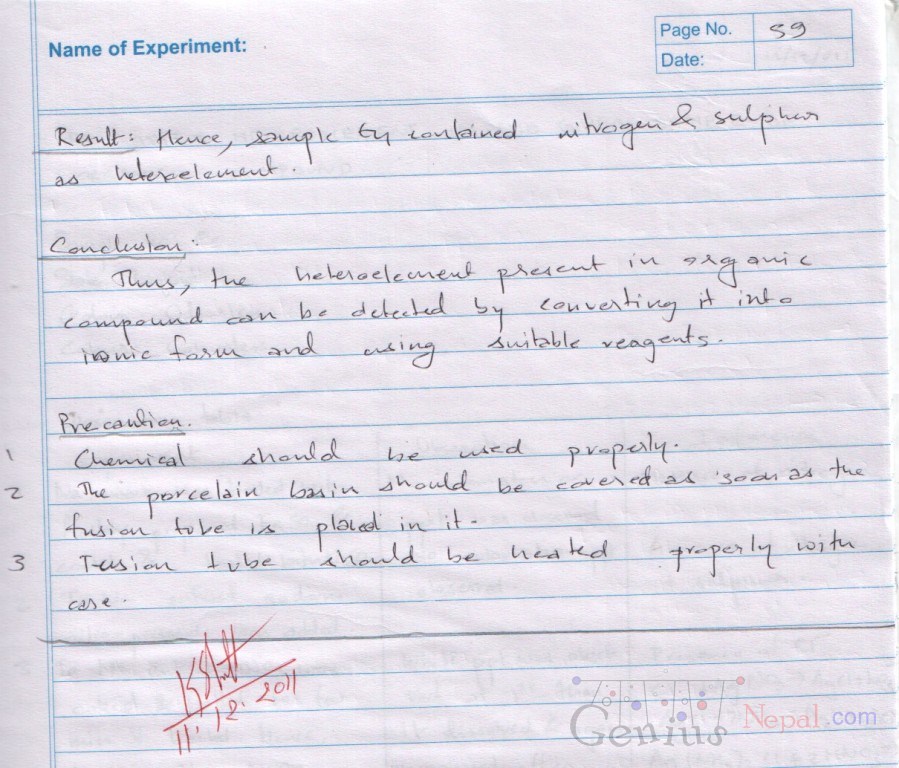 Name of Experiment:
Page No. 59
Date:
Result: Hence, sample contained nitrogen & sulphur
as heteroelement.
Conclusion:
Thus, the heteroelement present in organic
compound can be detected by converting it into
ionic form and using suitable reagents.
Precaution.
1 Chemical should be used properly.
2 The porcelain basin should be covered as soon as the
fusion tube is placed in it.
3 Fusion tube should be heated properly with
care.
11.12.2011
Genius Nepal.com